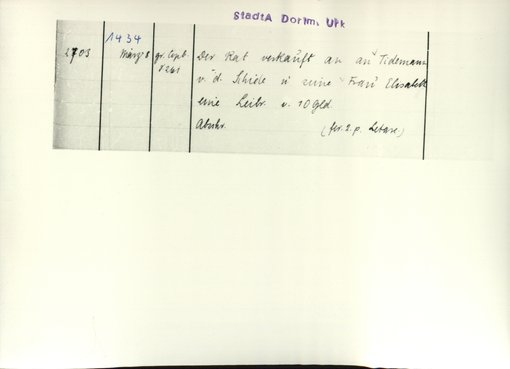 StadtA Dortm. Urk
1434
2703 März 8 gr. Copb. Der Rat verkauft an Tidemann
v. d. Schide u seine Frau Elisabeth
eine Leibr. v. 10 Gld
Abschr. (fer. 2. p. Letare)